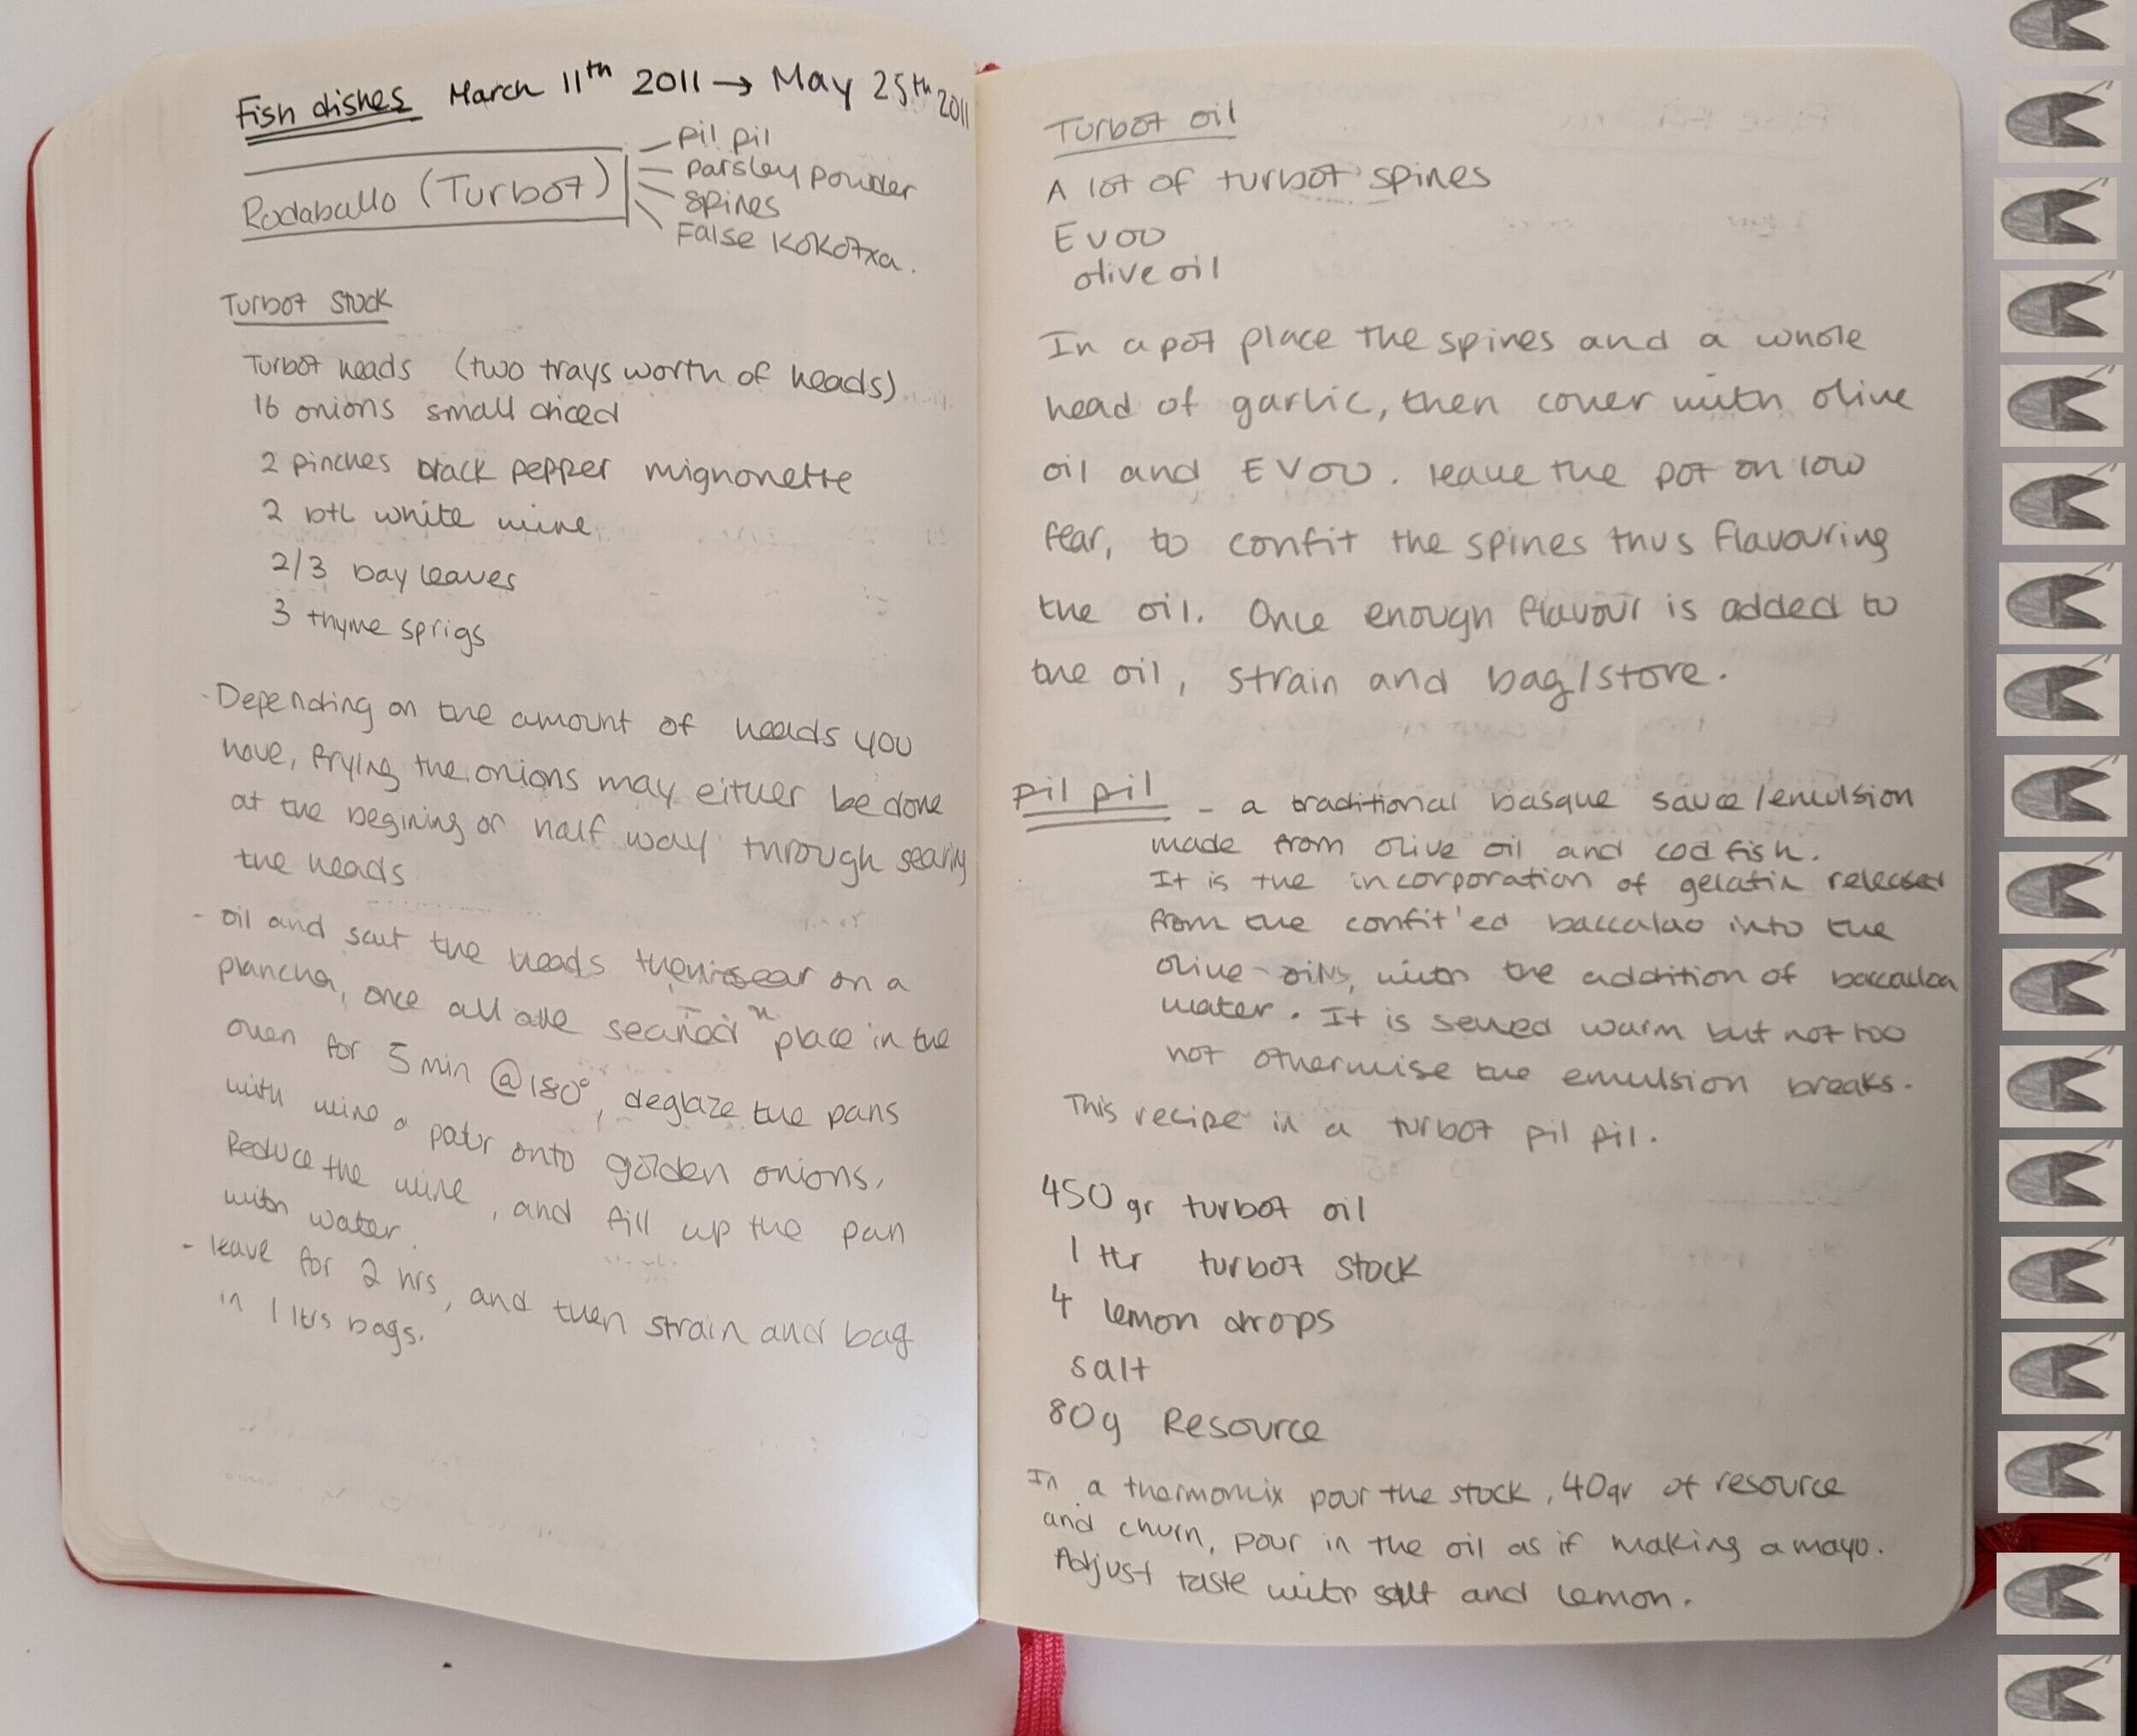 Fish dishes March 11th 2011 → May 25th 2011
Rodaballo (Turbot)
pil pil
parsley powder
spines
False Kokotxa.
Turbot Stock
Turbot heads (two trays worth of heads)
16 onions small diced
2 pinches black pepper mignonette
2 btl white wine
2/3 bay leaves
3 thyme sprigs
- Depending on the amount of heads you
have, frying the onions may either be done
at the begining or half way through searing
the heads
- oil and salt the heads then sear on a
plancha, once all are seared place in the
oven for 5 min @180°, deglaze the pans
with wine & pour onto golden onions.
Reduce the wine, and fill up the pan
with water.
- leave for 2 hrs, and then strain and bag
in 1 ltrs bags.
Turbot oil
A lot of turbot spines
EVOO
olive oil
In a pot place the spines and a whole
head of garlic, then cover with olive
oil and EVOO. leave the pot on low
fear, to confit the spines thus flavouring
the oil. Once enough flavour is added to
the oil, strain and bag/store.
pil pil - a traditional basque sauce/emulsion
made from olive oil and cod fish.
It is the incorporation of gelatin released
from the confit'ed baccalao into the
olive oils, with the addition of baccalao
water. It is served warm but not too
hot otherwise the emulsion breaks.
This recipe in a turbot pil pil.
450 gr turbot oil
1 ltr turbot stock
4 lemon drops
salt
80g Resource
In a thermomix pour the stock, 40gr of resource
and churn, pour in the oil as if making a mayo.
Adjust taste with salt and lemon.